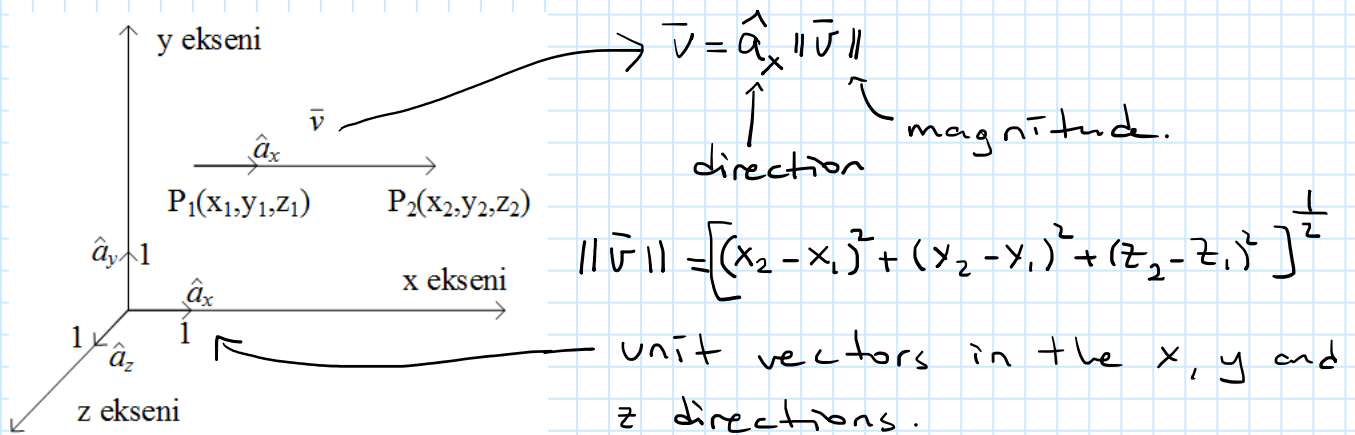 y ekseni
v̄
âₓ
P₁(x₁,y₁,z₁)
P₂(x₂,y₂,z₂)
â_y
1
x ekseni
âₓ
1
1
â_z
z ekseni
v̄ = âₓ ‖v̄‖
direction
magnitude.
‖v̄‖ = [(x₂ - x₁)² + (y₂ - y₁)² + (z₂ - z₁)²]^(1/2)
unit vectors in the x, y and
z directions.